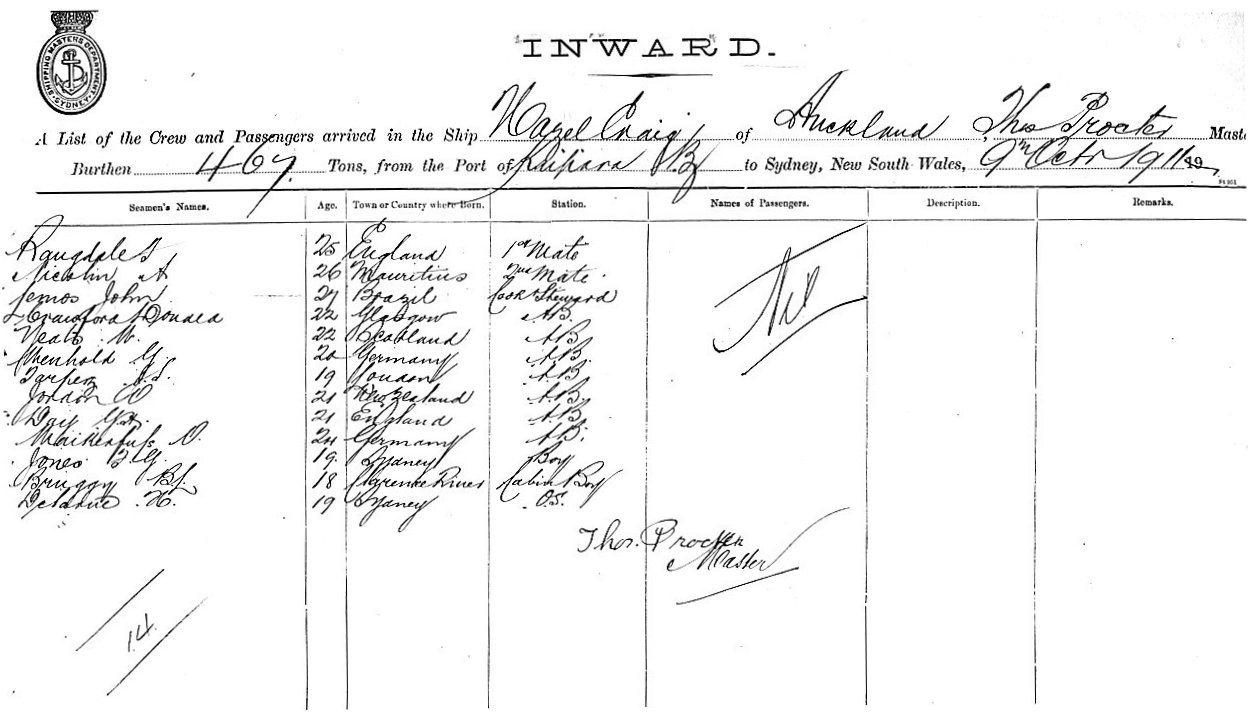 SHIPPING MASTERS DEPARTMENT SYDNEY
INWARD.
A List of the Crew and Passengers arrived in the Ship Hazel Craig of Auckland, Thos Procter Maste
Burthen 467. Tons, from the Port of Kaipara NZ to Sydney, New South Wales, 9th Octr 1911 19
Seamen's Names. Age. Town or Country where Born. Station. Names of Passengers. Description. Remarks.
25 England 1st Mate
Nicolin A 26 Mauritius 2nd Mate
Lemos John 27 Brazil Cook & Steward
Crawford Donald 22 Glasgow A.B.
W. 22 Scotland A.B.
G. 20 Germany A.B.
19 London A.B.
Jordon O 21 New Zealand A.B.
Day 21 England A.B.
O. 24 Germany A.B.
Jones G. 19 Sydney Boy
Bruggy 18 Clarence River Cabin Boy
H. 19 Sydney O.S.
Nil
Thos. Procter
Master
14